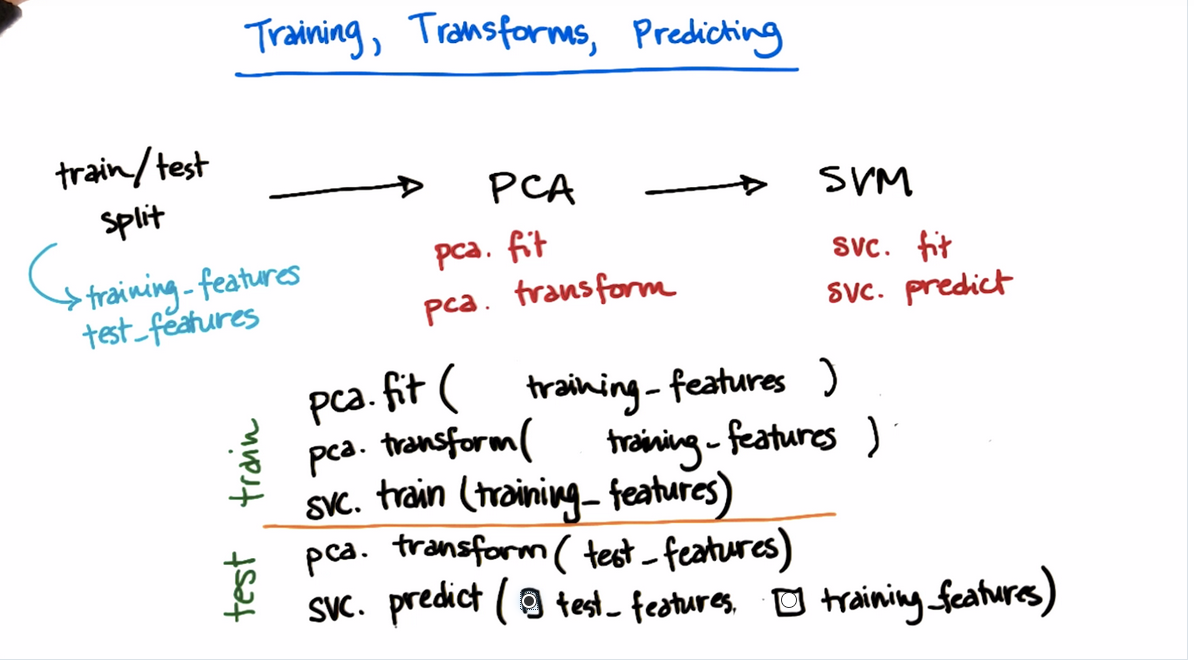 Training, Transforms, Predicting
train/test
split
training_features
test_features
PCA
pca. fit
pca. transform
SVM
svc. fit
svc. predict
train
pca.fit( training_features )
pca. transform( training_features )
svc. train (training_features)
test
pca. transform( test_features)
svc. predict ( test_features, training_features)